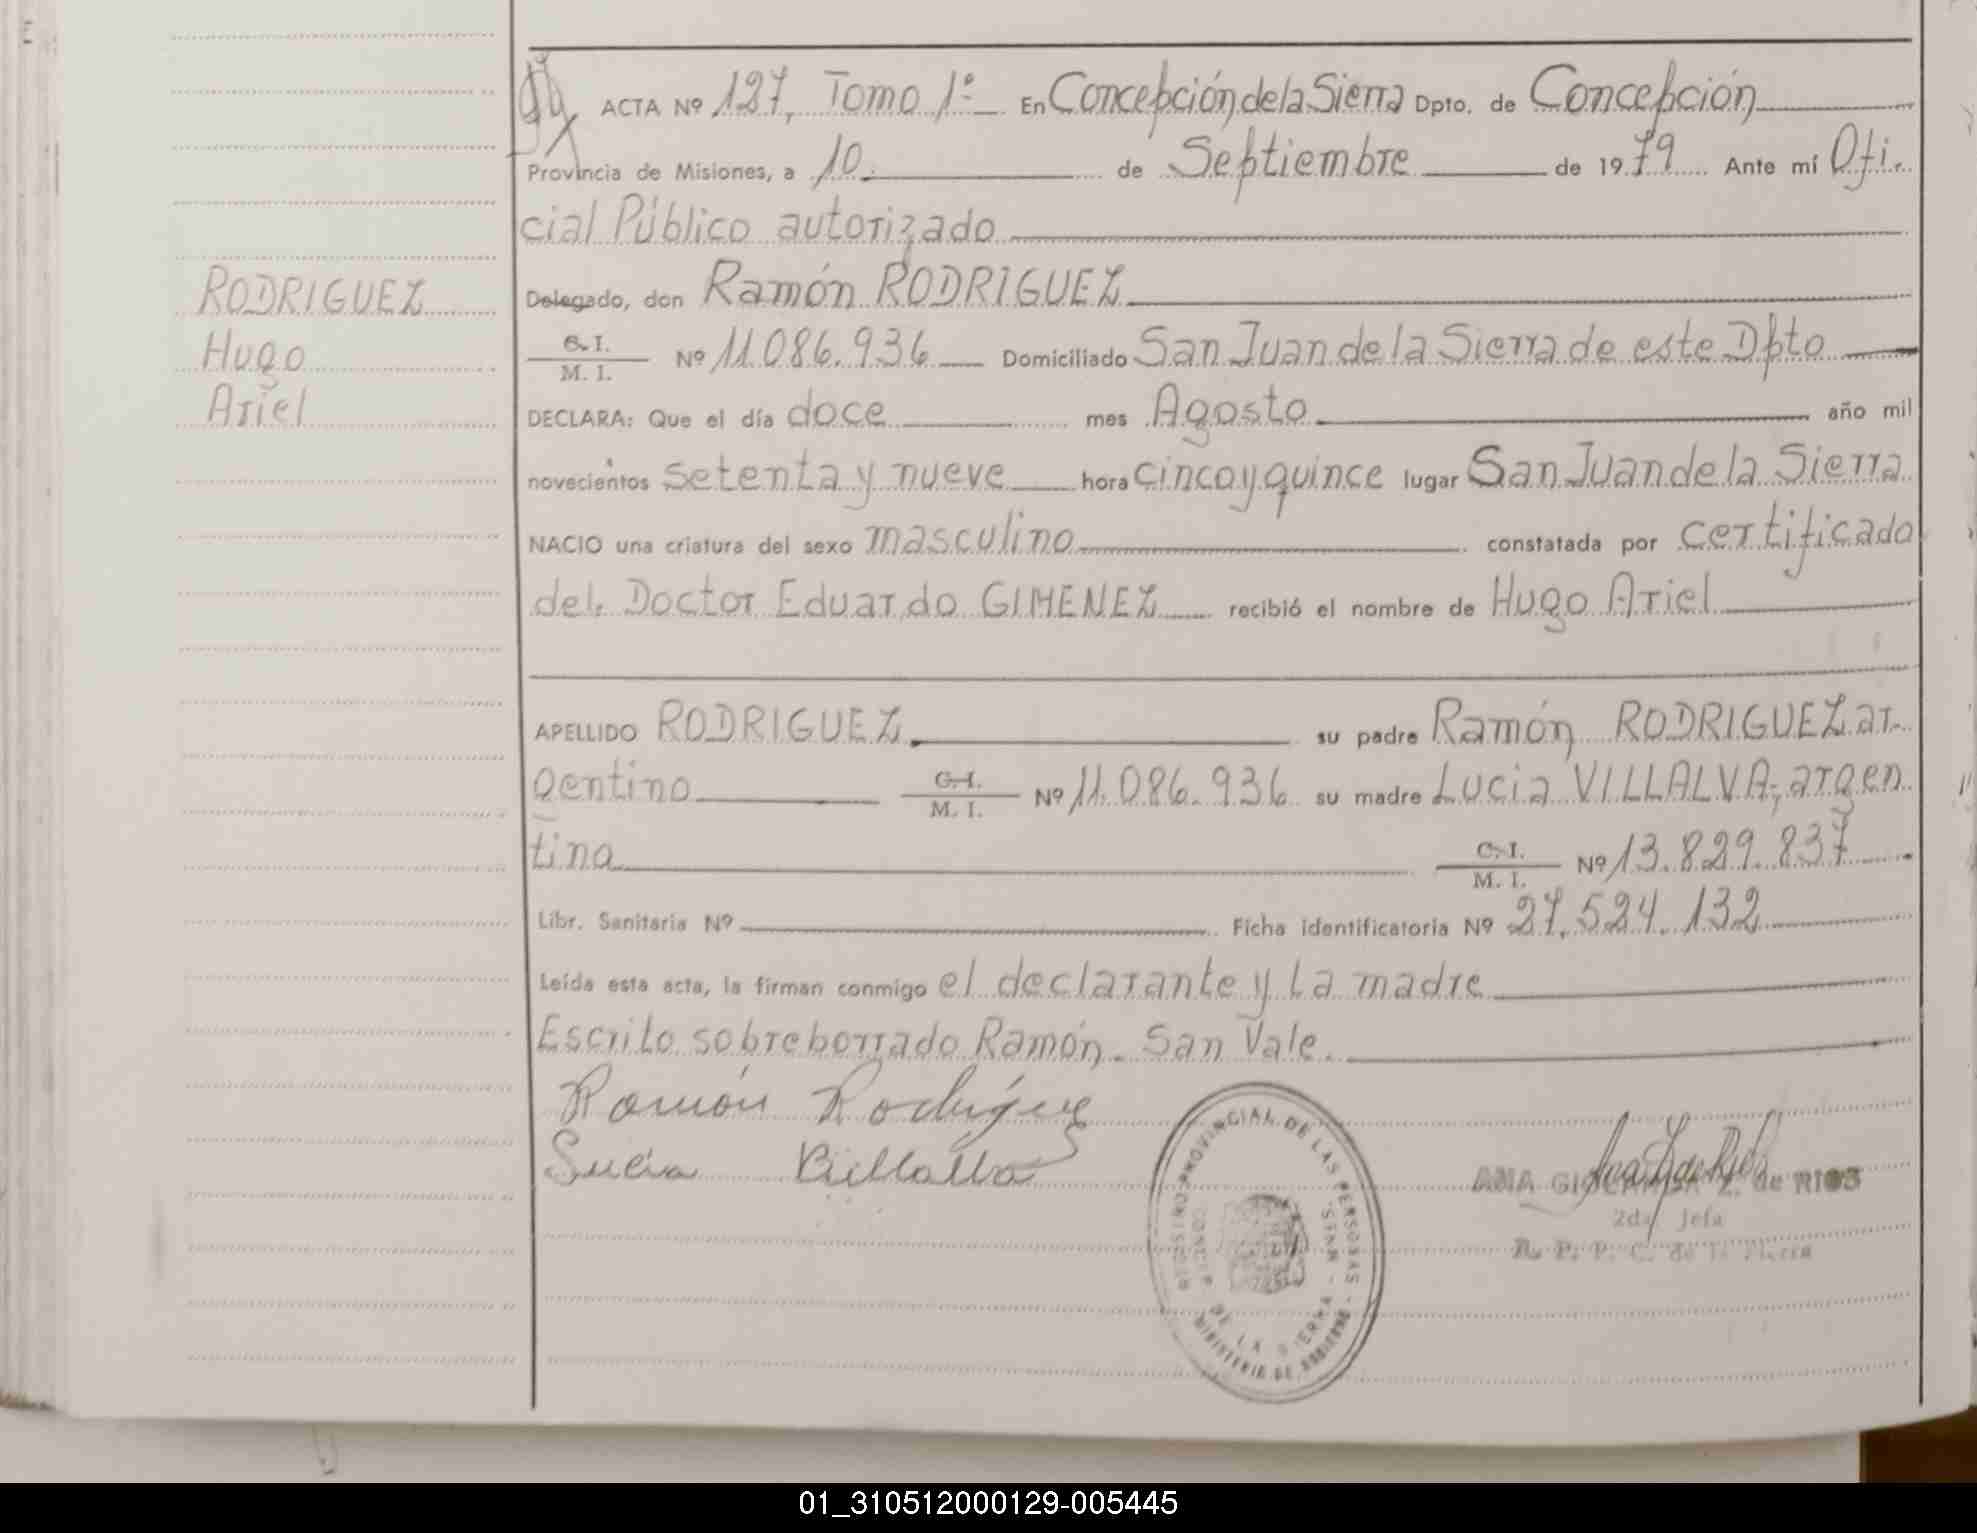 ACTA Nº 127, Tomo 1º En Concepción de la Sierra Dpto. de Concepción
Provincia de Misiones, a 10 de Septiembre de 1979 Ante mí Ofi-
cial Público autorizado
Delegado, don Ramón RODRIGUEZ
C. I.
M. I. Nº 11.086.936 Domiciliado San Juan de la Sierra de este Dpto
DECLARA: Que el día doce mes Agosto año mil
novecientos setenta y nueve hora cinco y quince lugar San Juan de la Sierra
NACIO una criatura del sexo masculino constatada por certificado
del Doctor Eduardo GIMENEZ recibió el nombre de Hugo Ariel
RODRIGUEZ
Hugo
Ariel
APELLIDO RODRIGUEZ su padre Ramón RODRIGUEZ ar-
gentino C. I.
M. I. Nº 11.086.936 su madre Lucia VILLALVA, argen
tina C. I.
M. I. Nº 13.829.837
Libr. Sanitaria Nº Ficha identificatoria Nº 27.524.132
Leída esta acta, la firman conmigo el declarante y la madre
Escrito sobreborrado Ramón. San Vale.
Ramón Rodríguez
Lucia Billalba
REGISTRO PROVINCIAL DE LAS PERSONAS
DE LA SIERRA
MINISTERIO DE GOBIERNO
ANA Z. de RIOS
2da Jefa
01_310512000129-005445